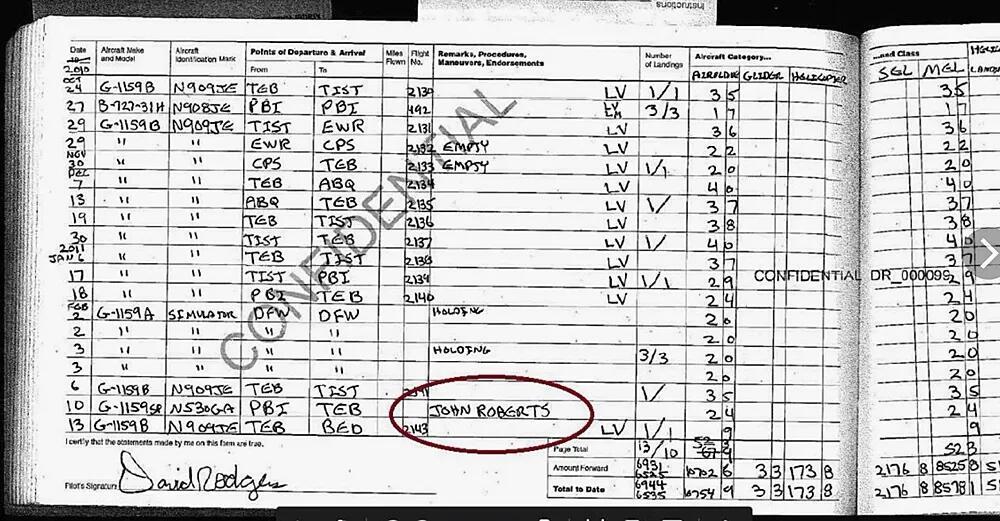 Instructions
Date Aircraft Make and Model Aircraft Identification Mark Points of Departure & Arrival From To Miles Flown Flight No. Remarks, Procedures, Maneuvers, Endorsements Number of Landings Aircraft Category... ...and Class
2010 AIRPLANE GLIDER HELICOPTER SGL MEL
OCT 24 G-1159B N909JE TEB TIST 2130 LV 1/1 3 5 3 5
27 B-727-31H N908JE PBI PBI 492 LV 3/3 1 7 1 7
29 G-1159B N909JE TIST EWR 2131 LV 3 6 3 6
29 " " EWR CPS 2132 EMPTY LV 2 2 2 2
NOV 30 " " CPS TEB 2133 EMPTY LV 1/1 2 0 2 0
DEC 7 " " TEB ABQ 2134 LV 4 0 4 0
13 " " ABQ TEB 2135 LV 1/ 3 7 3 7
19 " " TEB TIST 2136 LV 3 8 3 8
30 " " TIST TEB 2137 LV 1/ 4 0 4 0
2011 JAN 6 " " TEB TIST 2138 LV 3 7 3 7
17 " " TIST PBI 2139 LV 1/1 2 9 2 9
18 " " PBI TEB 2140 LV 2 4 2 4
FEB 2 G-1159A SIMULATOR DFW DFW HOLDING 2 0 2 0
2 " " " " 2 0 2 0
3 " " " " HOLDING 3/3 2 0 2 0
3 " " " " 2 0 2 0
6 G-1159B N909JE TEB TIST 1/ 3 5 3 5
10 N530GA PBI TEB JOHN ROBERTS 2 4 2 4
13 G-1159B N909JE TEB BED 2143 LV 1/1 9 9
CONFIDENTIAL
CONFIDENTIAL DR_000095
I certify that the statements made by me on this form are true.
Page Total 13/10 52 3
Amount Forward 6931 6525 10702 6 3 3 173 8 2176 8 8525 8
Total to Date 6944 6535 10754 9 3 3 173 8 2176 8 8578 1
Pilot's Signature David Rodgers